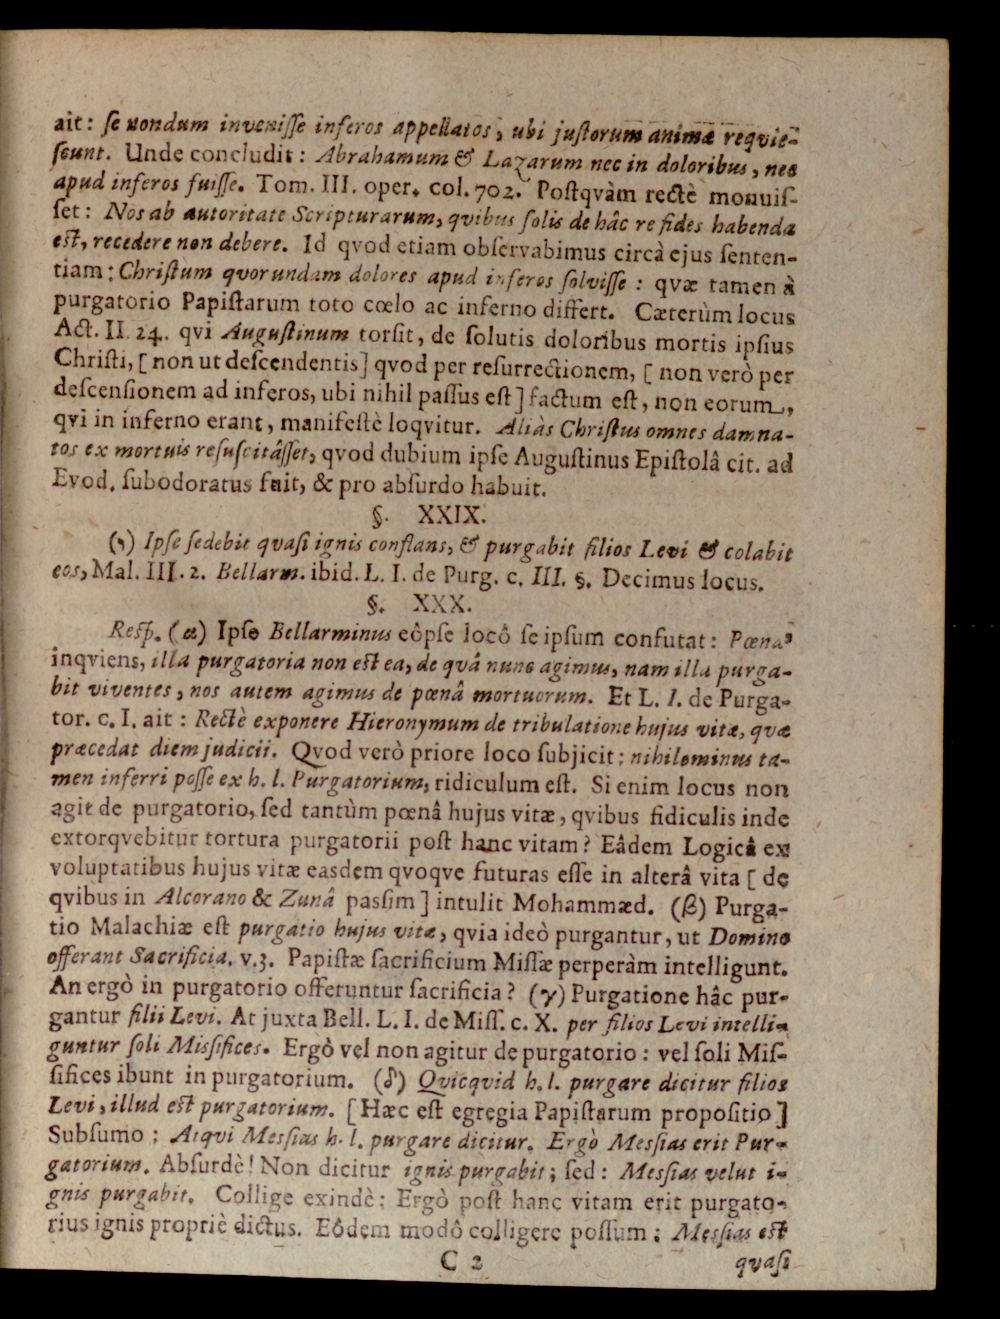 ait: ſe nondum inveniſſe inferos appellatos, ubi juſtorum animæ reqvie-
ſcunt. Unde concludit: Abrahamum & Lazarum nec in doloribus, nec
apud inferos fuiſſe. Tom. III. oper. col. 702. Poſtqvàm rectè monuiſ-
ſet: Nos ab autoritate Scripturarum, qvibus ſolis de hâc re fides habenda
eſt, recedere non debere. Id qvod etiam obſervabimus circà ejus ſenten-
tiam: Chriſtum qvorundam dolores apud inferos ſolviſſe: qvæ tamen à
purgatorio Papiſtarum toto cœlo ac inferno differt. Cæterùm locus
Act. II. 24. qvi Auguſtinum torſit, de ſolutis doloribus mortis ipſius
Chriſti, [non ut deſcendentis] qvod per reſurrectionem, [non verò per
deſcenſionem ad inferos, ubi nihil paſſus eſt] factum eſt, non eorum,
qvi in inferno erant, manifeſtè loqvitur. Aliàs Chriſtus omnes damna-
tos ex mortuis reſuſcitâſſet, qvod dubium ipſe Auguſtinus Epiſtolâ cit. ad
Evod. ſubodoratus fuit, & pro abſurdo habuit.
§. XXIX.
(ו) Ipſe ſedebit qvaſi ignis conflans, & purgabit filios Levi & colabit
eos, Mal. III. 2. Bellarm. ibid. L. I. de Purg. c. III. §. Decimus locus.
§. XXX.
Reſp. (α) Ipſe Bellarminus eôpſe locô ſe ipſum confutat: Pœna,
inqviens, illa purgatoria non eſt ea, de qvâ nunc agimus, nam illa purga-
bit viventes, nos autem agimus de pœnâ mortuorum. Et L. I. de Purga-
tor. c. I. ait: Rectè exponere Hieronymum de tribulatione hujus vitæ, qvæ
præcedat diem judicii. Qvod verò priore loco ſubjicit: nihilominus ta-
men inferri poſſe ex h. l. Purgatorium, ridiculum eſt. Si enim locus non
agit de purgatorio, ſed tantùm pœnâ hujus vitæ, qvibus fidiculis inde
extorqvebitur tortura purgatorii poſt hanc vitam? Eâdem Logicâ ex
voluptatibus hujus vitæ easdem qvoqve futuras eſſe in alterâ vita [de
qvibus in Alcorano & Zunâ paſsim] intulit Mohammæd. (β) Purga-
tio Malachiæ eſt purgatio hujus vitæ, qvia ideò purgantur, ut Domino
offerant Sacrificia. v.3. Papiſtæ ſacrificium Miſſæ perperàm intelligunt.
An ergò in purgatorio offeruntur ſacrificia? (γ) Purgatione hâc pur-
gantur filii Levi. At juxta Bell. L. I. de Miſſ. c. X. per filios Levi intelli-
guntur ſoli Miſsifices. Ergò vel non agitur de purgatorio: vel ſoli Miſ-
ſifices ibunt in purgatorium. (δ) Qvicqvid h. l. purgare dicitur filios
Levi, illud eſt purgatorium. [Hæc eſt egregia Papiſtarum propoſitio]
Subſumo: Atqvi Meſsias h. l. purgare dicitur. Ergò Meſsias erit Pur-
gatorium. Abſurdè! Non dicitur ignis purgabit; ſed: Meſsias velut i-
gnis purgabit. Collige exindè: Ergò poſt hanc vitam erit purgato-
rius ignis propriè dictus. Eôdem modô colligere poſſum: Meſsias eſt
C 2 qvaſi